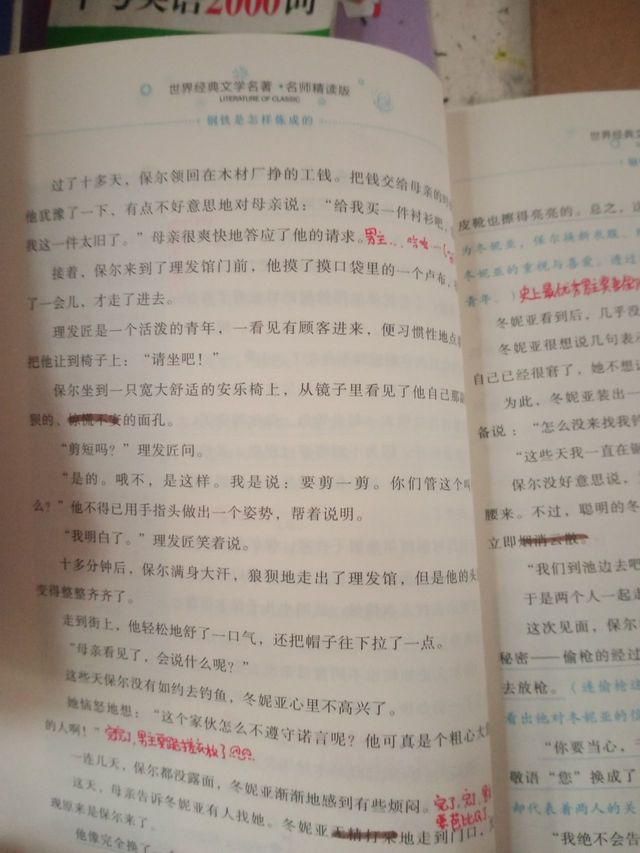 英语2000词
世界经典文学名著·名师精读版
LITERATURE OF CLASSIC
钢铁是怎样炼成的
过了十多天，保尔领回在木材厂挣的工钱。把钱交给母亲的时
他犹豫了一下，有点不好意思地对母亲说：“给我买一件衬衫吧，
我这一件太旧了。”母亲很爽快地答应了他的请求。男主…
接着，保尔来到了理发馆门前，他摸了摸口袋里的一个卢布，
了一会儿，才走了进去。
理发匠是一个活泼的青年，一看见有顾客进来，便习惯性地点
把他让到椅子上：“请坐吧！”
保尔坐到一只宽大舒适的安乐椅上，从镜子里看见了他自己那
狈的、惊慌不安的面孔。
“剪短吗？”理发匠问。
“是的。哦不，是这样。我是说：要剪一剪。你们管这个叫
么？”他不得已用手指头做出一个姿势，帮着说明。
“我明白了。”理发匠笑着说。
十多分钟后，保尔满身大汗，狼狈地走出了理发馆，但是他的头
变得整整齐齐了。
走到街上，他轻松地舒了一口气，还把帽子往下拉了一点。
“母亲看见了，会说什么呢？”
这些天保尔没有如约去钓鱼，冬妮亚心里不高兴了。
她恼怒地想：“这个家伙怎么不遵守诺言呢？他可真是个粗心大
的人啊！”完了，男主要
一连几天，保尔都没露面，冬妮亚渐渐地感到有些烦闷。完了，完了，
这天，母亲告诉冬妮亚有人找她。冬妮亚无精打采地走到门口，
现原来是保尔来了。
他像完全换了一
世界经典文
皮靴也擦得亮亮的。总之，
为冬妮亚，保尔换新衣服、
冬妮亚的重视与喜爱。透过
青年。）史上最优秀男主
冬妮亚看到后，几乎没
冬妮亚很想说几句表示
自己已经很窘了，她不想
为此，冬妮亚装出一
备说：“怎么没来找我钓
“这些天我一直在锯
保尔没好意思说，
腰来。不过，聪明的冬
立即烟消云散。
“我们到池边去吧
于是两个人一起走
这次见面，保尔
秘密——偷枪的经过
去放枪。（透偷枪这
看出他对冬妮亚的信
“你要当心，
敬语“您”换成了
却代表着两人的关
“我绝不会告